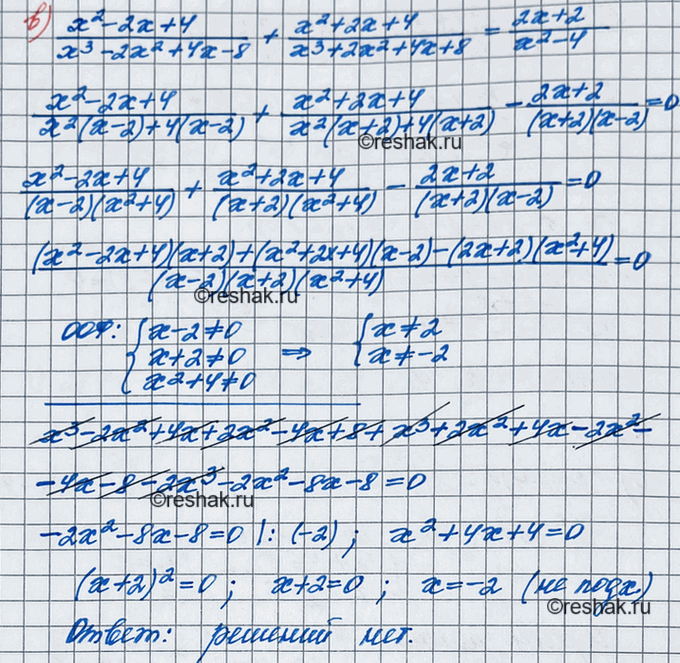 в) (x²-2x+4)/(x³-2x²+4x-8) + (x²+2x+4)/(x³+2x²+4x+8) = (2x+2)/(x²-4)
(x²-2x+4)/(x²(x-2)+4(x-2)) + (x²+2x+4)/(x²(x+2)+4(x+2)) - (2x+2)/((x+2)(x-2)) = 0
©reshak.ru
(x²-2x+4)/((x-2)(x²+4)) + (x²+2x+4)/((x+2)(x²+4)) - (2x+2)/((x+2)(x-2)) = 0
((x²-2x+4)(x+2)+(x²+2x+4)(x-2)-(2x+2)(x²+4))/((x-2)(x+2)(x²+4)) = 0
©reshak.ru
ООФ: { x-2≠0 { x≠2
x+2≠0 ⇒ x≠-2
x²+4≠0
x³-2x²+4x+2x²-4x+8+x³+2x²+4x-2x²-
-4x-8-2x³-2x²-8x-8=0
©reshak.ru
-2x²-8x-8=0 |: (-2); x²+4x+4=0
(x+2)²=0; x+2=0; x=-2 (не подх.)
©reshak.ru
Ответ: решений нет.